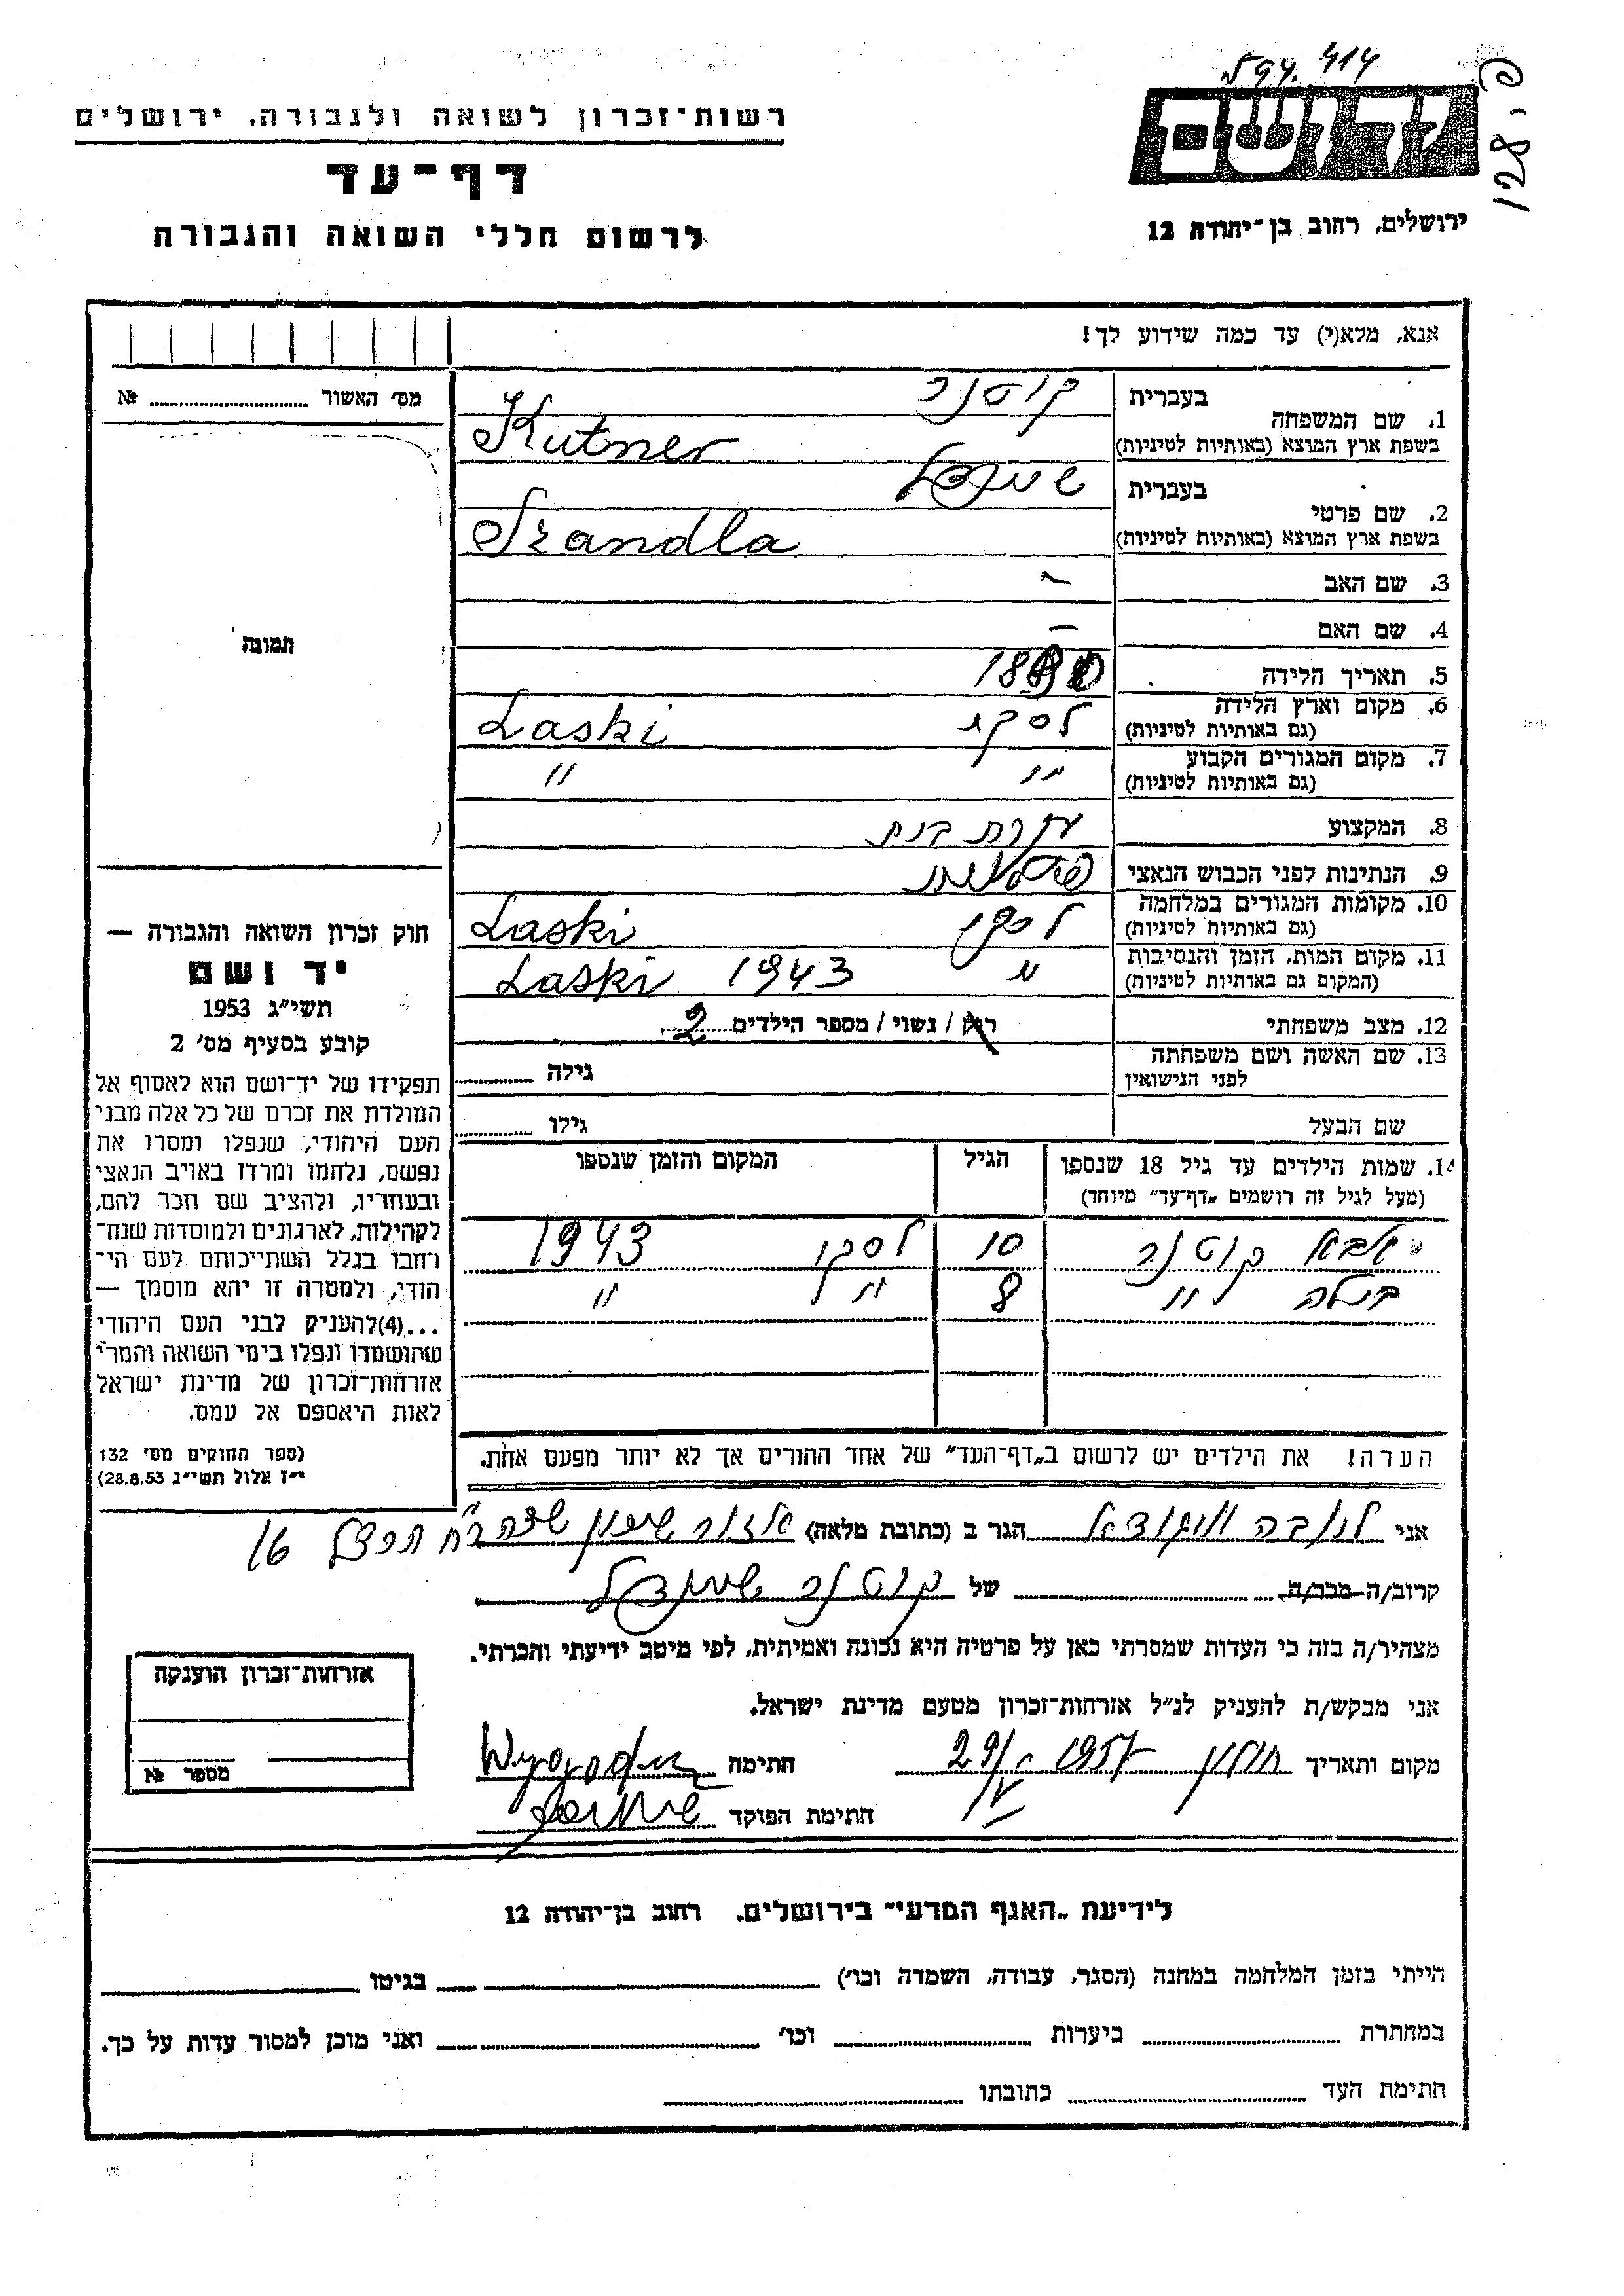 94. 414
יד ושם
128 . פ
ירושלים, רחוב בן־יהודה 12
רשות־זכרון לשואה ולגבורה, ירושלים
דף־עד
לרשום חללי השואה והגבורה
אנא, מלא(י) עד כמה שידוע לך!
מס׳ האשור № 
תמונה
חוק זכרון השואה והגבורה —
יד ושם
תשי״ג 1953
קובע בסעיף מס׳ 2
תפקידו של יד־ושם הוא לאסוף אל
המולדת את זכרם של כל אלה מבני
העם היהודי, שנפלו ומסרו את
נפשם, נלחמו ומרדו באויב הנאצי
ובעוזריו, ולהציב שם וזכר להם,
לקהילות, לארגונים ולמוסדות שנח־
רחבו בגלל השתייכותם לעם הי־
הודי, ולמטרה זו יהא מוסמך —
...(4)להעניק לבני העם היהודי
שהושמדו ונפלו בימי השואה והמרי
אזרחות־זכרון של מדינת ישראל
לאות היאספם אל עמם.
(ספר החוקים מס׳ 132
י״ז אלול תשי״ג 28.8.53)
בעברית קוטנר
1. שם המשפחה
בשפת ארץ המוצא (באותיות לטיניות) Kutner
בעברית שיינדל
2. שם פרטי
בשפת ארץ המוצא (באותיות לטיניות) Szandla
3. שם האב –
4. שם האם –
5. תאריך הלידה
6. מקום וארץ הלידה לסקי Laski
(גם באותיות לטיניות)
7. מקום המגורים הקבוע " "
(גם באותיות לטיניות)
8. המקצוע עקרת בית
9. הנתינות לפני הכבוש הנאצי פולנית
10. מקומות המגורים במלחמה לסקי Laski
(גם באותיות לטיניות)
11. מקום המות, הזמן והנסיבות " Laski 1943
(המקום גם באותיות לטיניות)
12. מצב משפחתי רוק / נשוי / מספר הילדים 2
13. שם האשה ושם משפחתה גילה
לפני הנישואין
שם הבעל גילו
14. שמות הילדים עד גיל 18 שנספו הגיל המקום והזמן שנספו
(מעל לגיל זה רושמים „דף־עד״ מיוחד)
אבא קוטנר 10 לסקי 1943
בילה " 8 " "
הערה! את הילדים יש לרשום ב„דף־העד״ של אחד ההורים אך לא יותר מפעם אחת.
אני הגר ב (כתובת מלאה) רח הרצל 16
קרוב/ה מכר/ה של קוטנר שיינדל
מצהיר/ה בזה כי העדות שמסרתי כאן על פרטיה היא נכונה ואמיתית, לפי מיטב ידיעתי והכרתי.
אני מבקש/ת להעניק לנ״ל אזרחות־זכרון מטעם מדינת ישראל.
מקום ותאריך חולון חתימה
חתימת הפוקד
אזרחות־זכרון הוענקה
מספר №
לידיעת „האגף המדעי״ בירושלים, רחוב בן־יהודה 12
הייתי בזמן המלחמה במחנה (הסגר, עבודה, השמדה וכו׳) בגיטו
במחתרת ביערות וכו׳ ואני מוכן למסור עדות על כך.
חתימת העד כתובתו